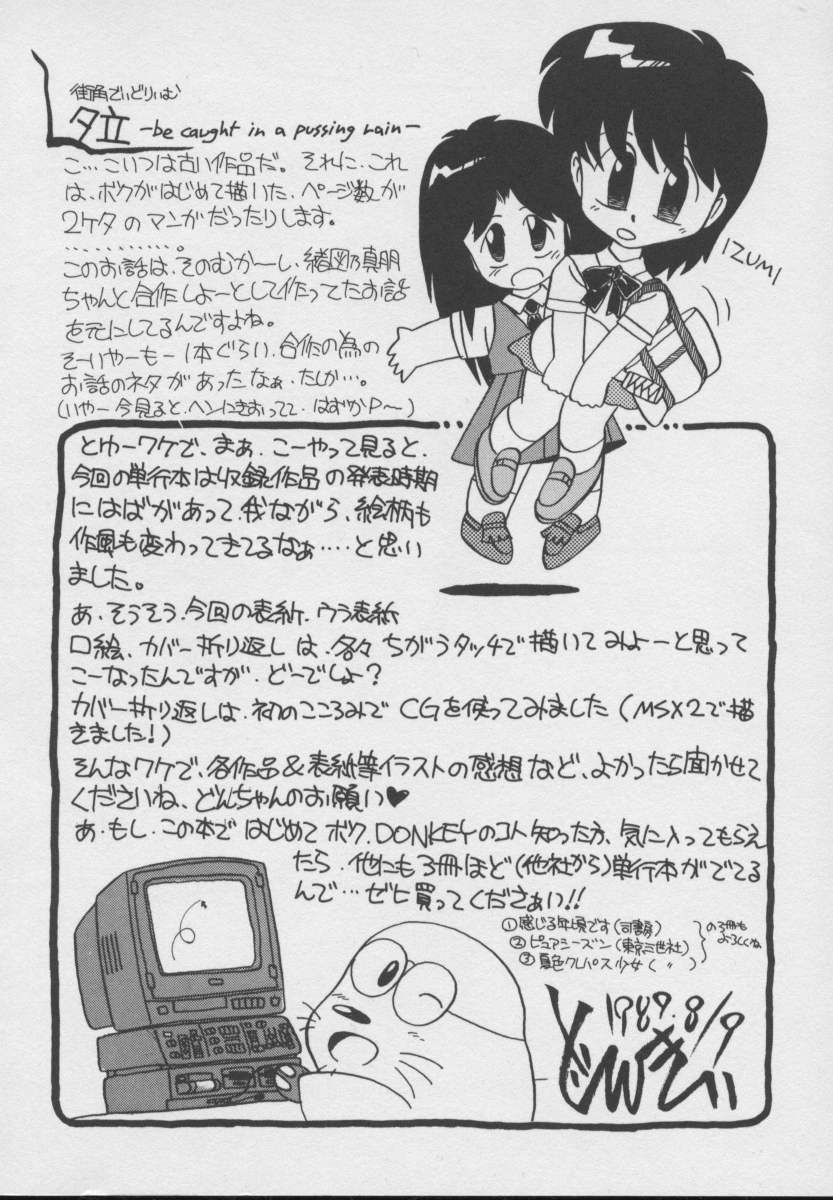 街角でいどりぃむ
夕立 -be caught in a pussing rain-
こ…こいつは古い作品だ。それに、これ
は、ボクがはじめて描いた、ページ数が
2ケタのマンガだったりします。
…………。
このお話は、そのむか〜し、緒図乃真朋
ちゃんと合作しよーとして作ってたお話
を元にしてるんですよね。
そーいやーもー1本ぐらい、合作の為の
お話のネタがあったなぁ、たしか…。
(いやー今見ると、ヘンにきおってて、はずかP〜)
IZUMI
とゆーワケで、まぁ、こーやって見ると、
今回の単行本は収録作品の発表時期
にはばがあって、我ながら、絵柄も
作風も変わってきてるなぁ‥‥と思い
ました。
あ、そうそう、今回の表紙、ウラ表紙
口絵、カバー折り返しは、各々ちがうタッチで描いてみよーと思って
こーなったんですが、どーでしょ?
カバー折り返しは、初のこころみでCGを使ってみました(MSX2で描
きました!)
そんなワケで、各作品&表紙等イラストの感想など、よかったら聞かせて
くださいね、どんちゃんのお願い♥
あ、もし、この本ではじめてボク、DONKEYのコト知った方、気に入ってもらえ
たら、他にも3冊ほど(他社から)単行本がでてる
んで…ゼヒ買ってくださぁい!!
①感じる年頃です(司書房)
②ピュアシーズン(東京三世社)
③夏色クレパス少女(〃)
の3冊も
よろしくね
1989.8/9
どんきぃ